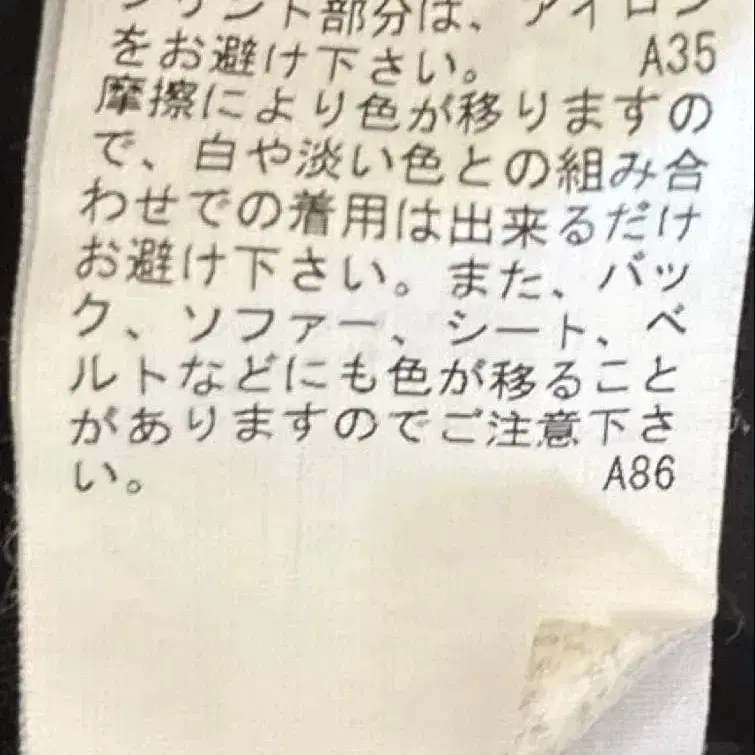 プリント部分は、アイロン
をお避け下さい。 A35
摩擦により色が移りますの
で、白や淡い色との組み合
わせでの着用は出来るだけ
お避け下さい。また、バッ
ク、ソファー、シート、ベ
ルトなどにも色が移ること
がありますのでご注意下さ
い。 A86